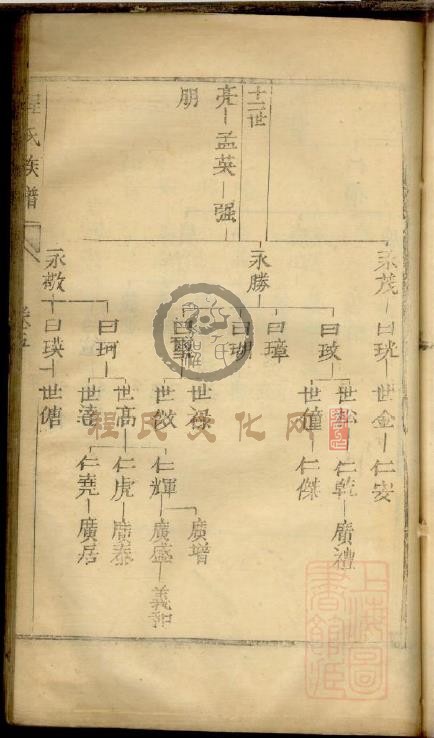 程氏族譜
卷五
十二世
亮 孟英 强
朋
永茂 曰珖 世金 仁安
永勝
曰玟 世松 仁乾 廣禮
世僮 仁傑
曰璋
曰瑚
世祿
世效 仁輝 廣增
廣盛 義和
永敬
曰珂 世高 仁虎 廣泰
世達 仁堯 廣居
曰瑛 世儲
程氏文化网
上海圖書館藏